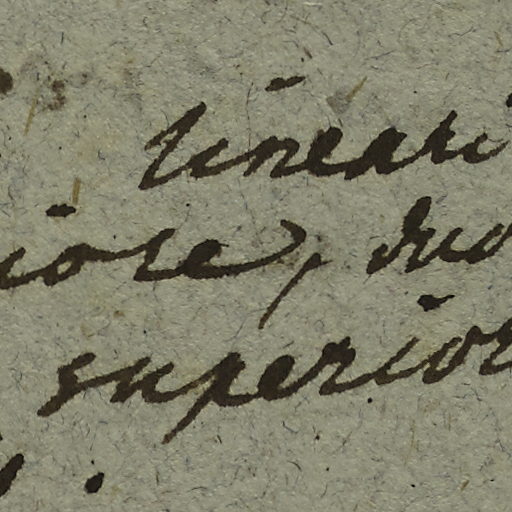 lineari
iore, duo
superior